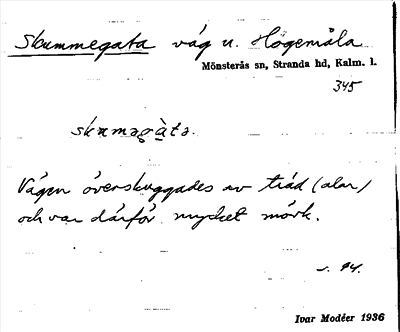 Skummegata väg u. Högemåla
Mönsterås sn, Stranda hd, Kalm. l.
345
skuməgàta.
Vägen överskuggades av träd (alar)
och var därför mycket mörk.
s. 94.
Ivar Modéer 1936